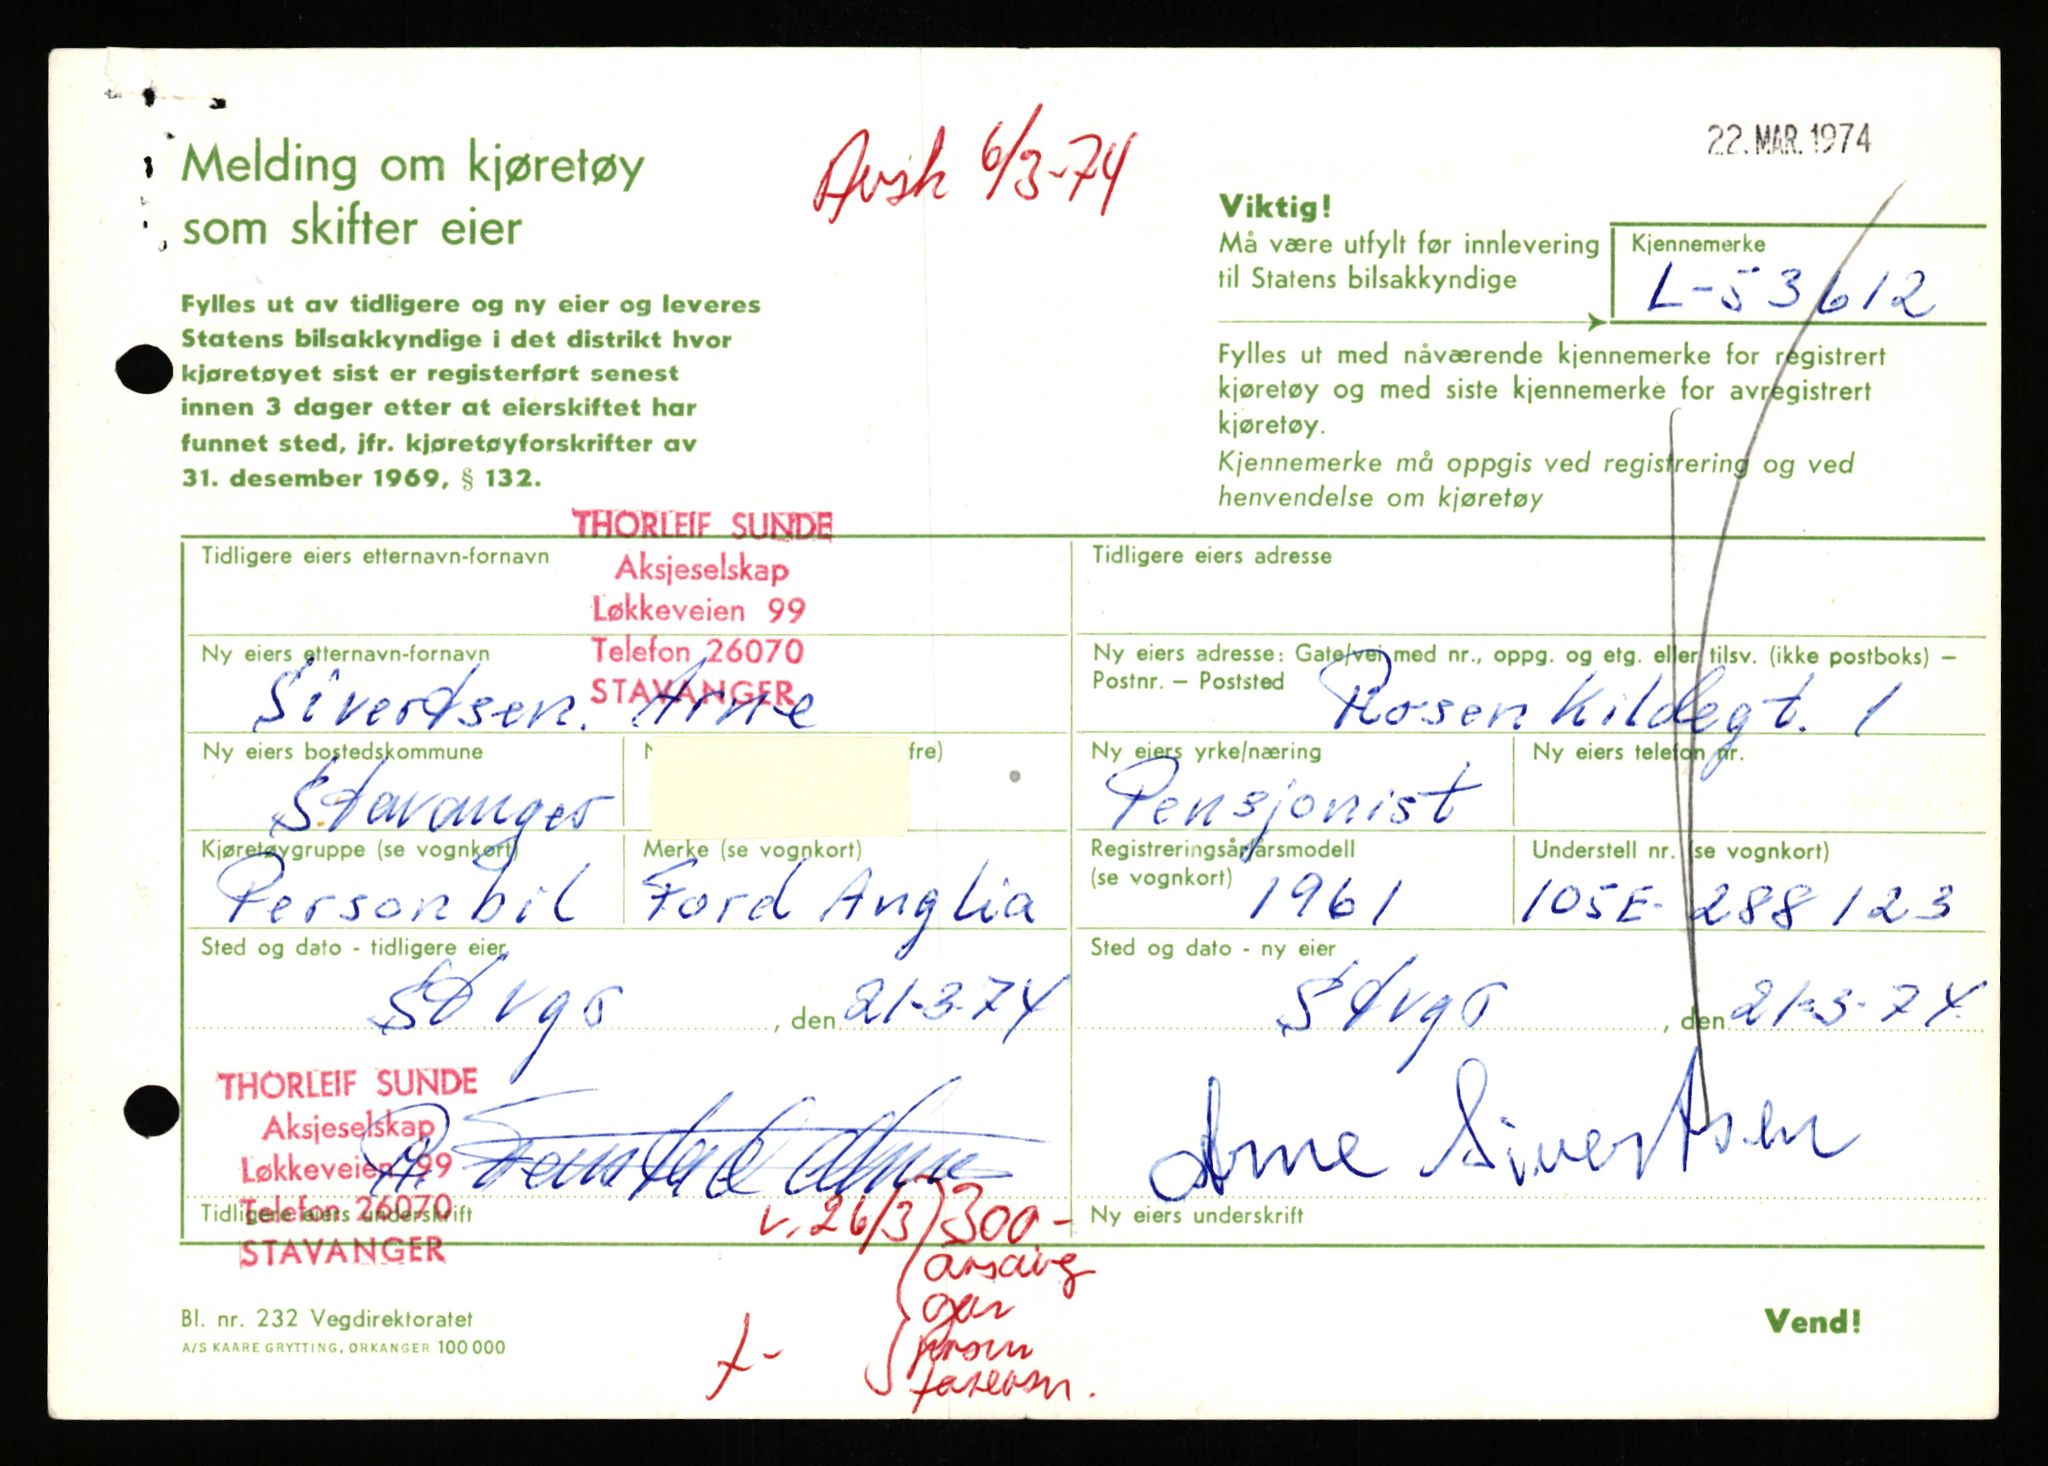 22. MAR. 1974
Avsk 6/3-74
Melding om kjøretøy
som skifter eier
Fylles ut av tidligere og ny eier og leveres
Statens bilsakkyndige i det distrikt hvor
kjøretøyet sist er registerført senest
innen 3 dager etter at eierskiftet har
funnet sted, jfr. kjøretøyforskrifter av
31. desember 1969, § 132.
Viktig!
Må være utfylt før innlevering
til Statens bilsakkyndige
Kjennemerke
L-53612
Fylles ut med nåværende kjennemerke for registrert
kjøretøy og med siste kjennemerke for avregistrert
kjøretøy.
Kjennemerke må oppgis ved registrering og ved
henvendelse om kjøretøy
Tidligere eiers etternavn-fornavn
THORLEIF SUNDE
Aksjeselskap
Løkkeveien 99
Telefon 26070
STAVANGER
Tidligere eiers adresse
Ny eiers etternavn-fornavn
Sivertsen. Arne
Ny eiers adresse: Gate/vei med nr., oppg. og etg. eller tilsv. (ikke postboks) –
Postnr. – Poststed
Rosenkildegt. 1
Ny eiers bostedskommune
Stavanger
fre)
Ny eiers yrke/næring
Pensjonist
Ny eiers telefon nr.
Kjøretøygruppe (se vognkort)
Personbil
Merke (se vognkort)
Ford Anglia
Registreringsår/årsmodell
(se vognkort)
1961
Understell nr. (se vognkort)
105E-288123
Sted og dato - tidligere eier
Stvgr , den 21-3-74
Sted og dato - ny eier
Stvgr , den 21-3-74
THORLEIF SUNDE
Aksjeselskap
Løkkeveien 99
Telefon 26070
STAVANGER
Tidligere eiers underskrift
Arne Sivertsen
Ny eiers underskrift
v. 26/3 300-
Bl. nr. 232 Vegdirektoratet
A/S KAARE GRYTTING, ORKANGER 100 000
Vend!